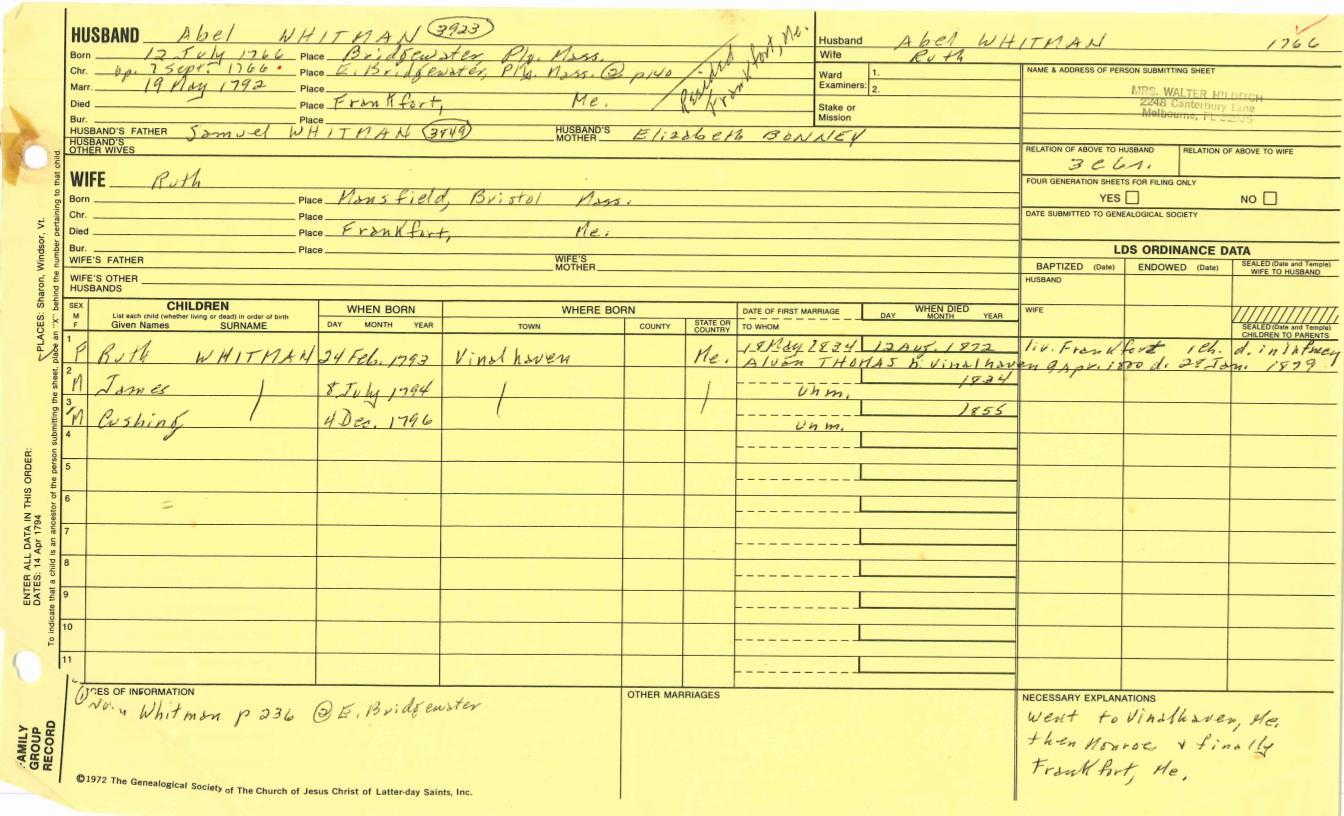 HUSBAND Abel WHITMAN 3923
Born 12 July 1766 Place Bridgewater Ply. Mass.
Chr. bp. 7 Sept. 1766 Place E. Bridgewater, Ply. Mass. ② p140
Marr. 19 May 1792 Place
Died Place Frankfort, Me.
Bur. Place
Resided Frankfort, Me.
HUSBAND'S FATHER Samuel WHITMAN 3849 HUSBAND'S MOTHER Elizabeth BONNEY
HUSBAND'S OTHER WIVES
Husband Abel WHITMAN 1766
Wife Ruth
Ward Examiners: 1.
2.
Stake or Mission
NAME & ADDRESS OF PERSON SUBMITTING SHEET
MRS. WALTER HILDITCH
2248 Canterbury Lane
Melbourne, FL
RELATION OF ABOVE TO HUSBAND RELATION OF ABOVE TO WIFE
FOUR GENERATION SHEETS FOR FILING ONLY
YES NO
DATE SUBMITTED TO GENEALOGICAL SOCIETY
WIFE Ruth
Born Place Mansfield, Bristol Mass.
Chr. Place
Died Place Frankfort, Me.
Bur. Place
WIFE'S FATHER WIFE'S MOTHER
WIFE'S OTHER HUSBANDS
LDS ORDINANCE DATA
BAPTIZED (Date) ENDOWED (Date) SEALED (Date and Temple) WIFE TO HUSBAND
HUSBAND
WIFE
SEALED (Date and Temple) CHILDREN TO PARENTS
SEX M F
CHILDREN
List each child (whether living or dead) in order of birth
Given Names SURNAME
WHEN BORN
DAY MONTH YEAR
WHERE BORN
TOWN COUNTY STATE OR COUNTRY
DATE OF FIRST MARRIAGE
TO WHOM
WHEN DIED
DAY MONTH YEAR
1 F Ruth WHITMAN 24 Feb. 1793 Vinalhaven Me. 18 May 1834 12 Aug. 1872 liv. Frankfort 1 ch. d. in infancy
Alvon THOMAS b. Vinalhaven 9 Apr. 1800 d. 28 Jan. 1879
2 M James 8 July 1794 unm. 1834
3 M Cushing 4 Dec. 1796 unm. 1855
4
5
6
7
8
9
10
11
OF INFORMATION
① Whitman p 236 ② E. Bridgewater
OTHER MARRIAGES
NECESSARY EXPLANATIONS
Went to Vinalhaven, Me.
then Monroe & finally
Frankfort, Me.
©1972 The Genealogical Society of The Church of Jesus Christ of Latter-day Saints, Inc.
ENTER ALL DATA IN THIS ORDER:
DATES: 14 Apr 1794
PLACES: Sharon, Windsor, Vt.
To indicate that a child is an ancestor of the person submitting the sheet, place an "X" behind the number pertaining to that child.
FAMILY
GROUP
RECORD